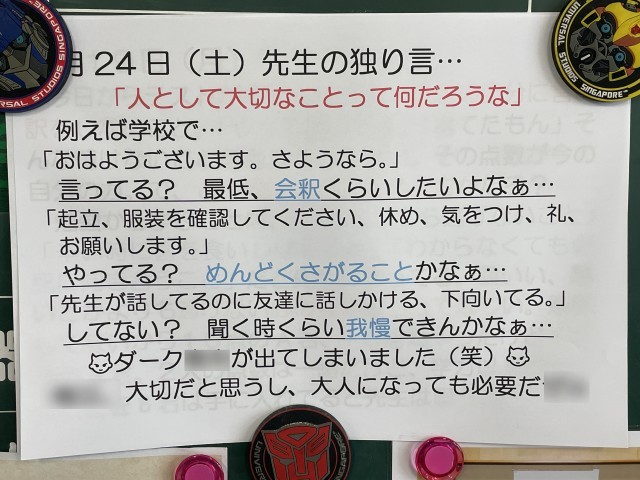 月24日（土）先生の独り言…
「人として大切なことって何だろうな」
例えば学校で…
「おはようございます。さようなら。」
言ってる？　最低、会釈くらいしたいよなぁ…
「起立、服装を確認してください、休め、気をつけ、礼、
お願いします。」
やってる？　めんどくさがることかなぁ…
「先生が話してるのに友達に話しかける、下向いてる。」
してない？　聞く時くらい我慢できんかなぁ…
ダーク
が出てしまいました（笑）
大切だと思うし、大人になっても必要だ
UNIVERSAL STUDIOS SINGAPORE
UNIVERSAL STUDIOS SINGAPORE